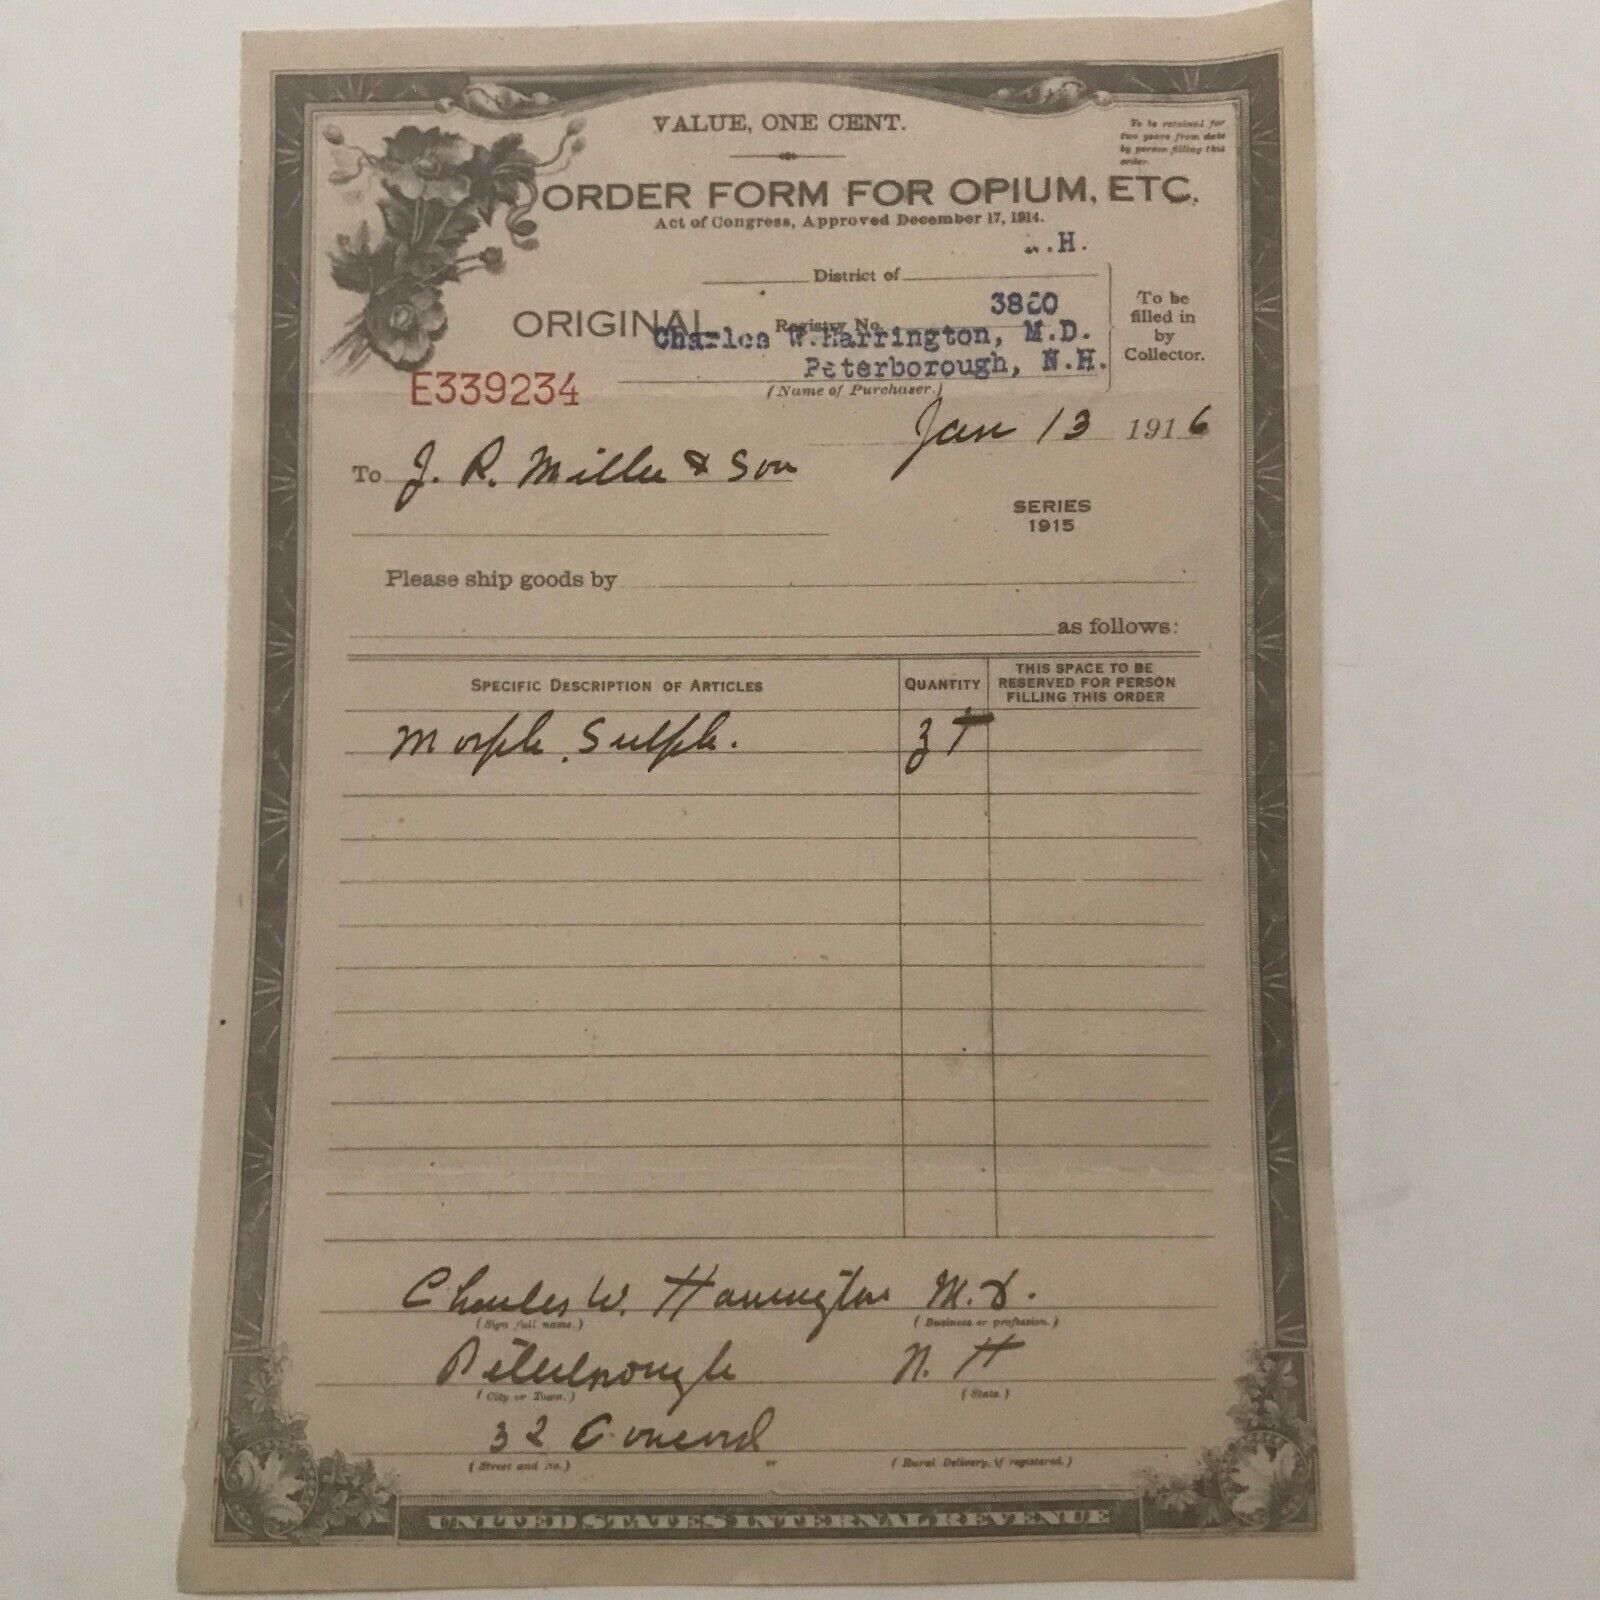 VALUE, ONE CENT.
To be retained for
two years from date
by person filling this
order.
ORDER FORM FOR OPIUM, ETC.
Act of Congress, Approved December 17, 1914.
.H.
District of
ORIGINAL
Registry No.
Charles W. Harrington, M.D.
Peterborough, N.H.
(Name of Purchaser.)
To be
filled in
by
Collector.
E339234
Jan 13 1916
To J. R. Miller & Son
SERIES
1915
Please ship goods by
as follows:
SPECIFIC DESCRIPTION OF ARTICLES
QUANTITY
THIS SPACE TO BE
RESERVED FOR PERSON
FILLING THIS ORDER
Morph. Sulph.
Charles W. Harrington M.D.
(Sign full name.) (Business or profession.)
Peterborough N. H
(City or Town.) (State.)
32 Concord
(Street and No.) or (Rural Delivery, if registered.)
UNITED STATES INTERNAL REVENUE